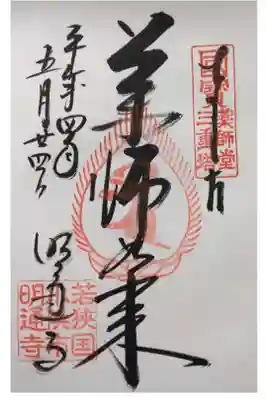 国宝薬師堂
三重塔
薬師如来
平成四年
五月廿四日
明通寺
若狭国
明通寺